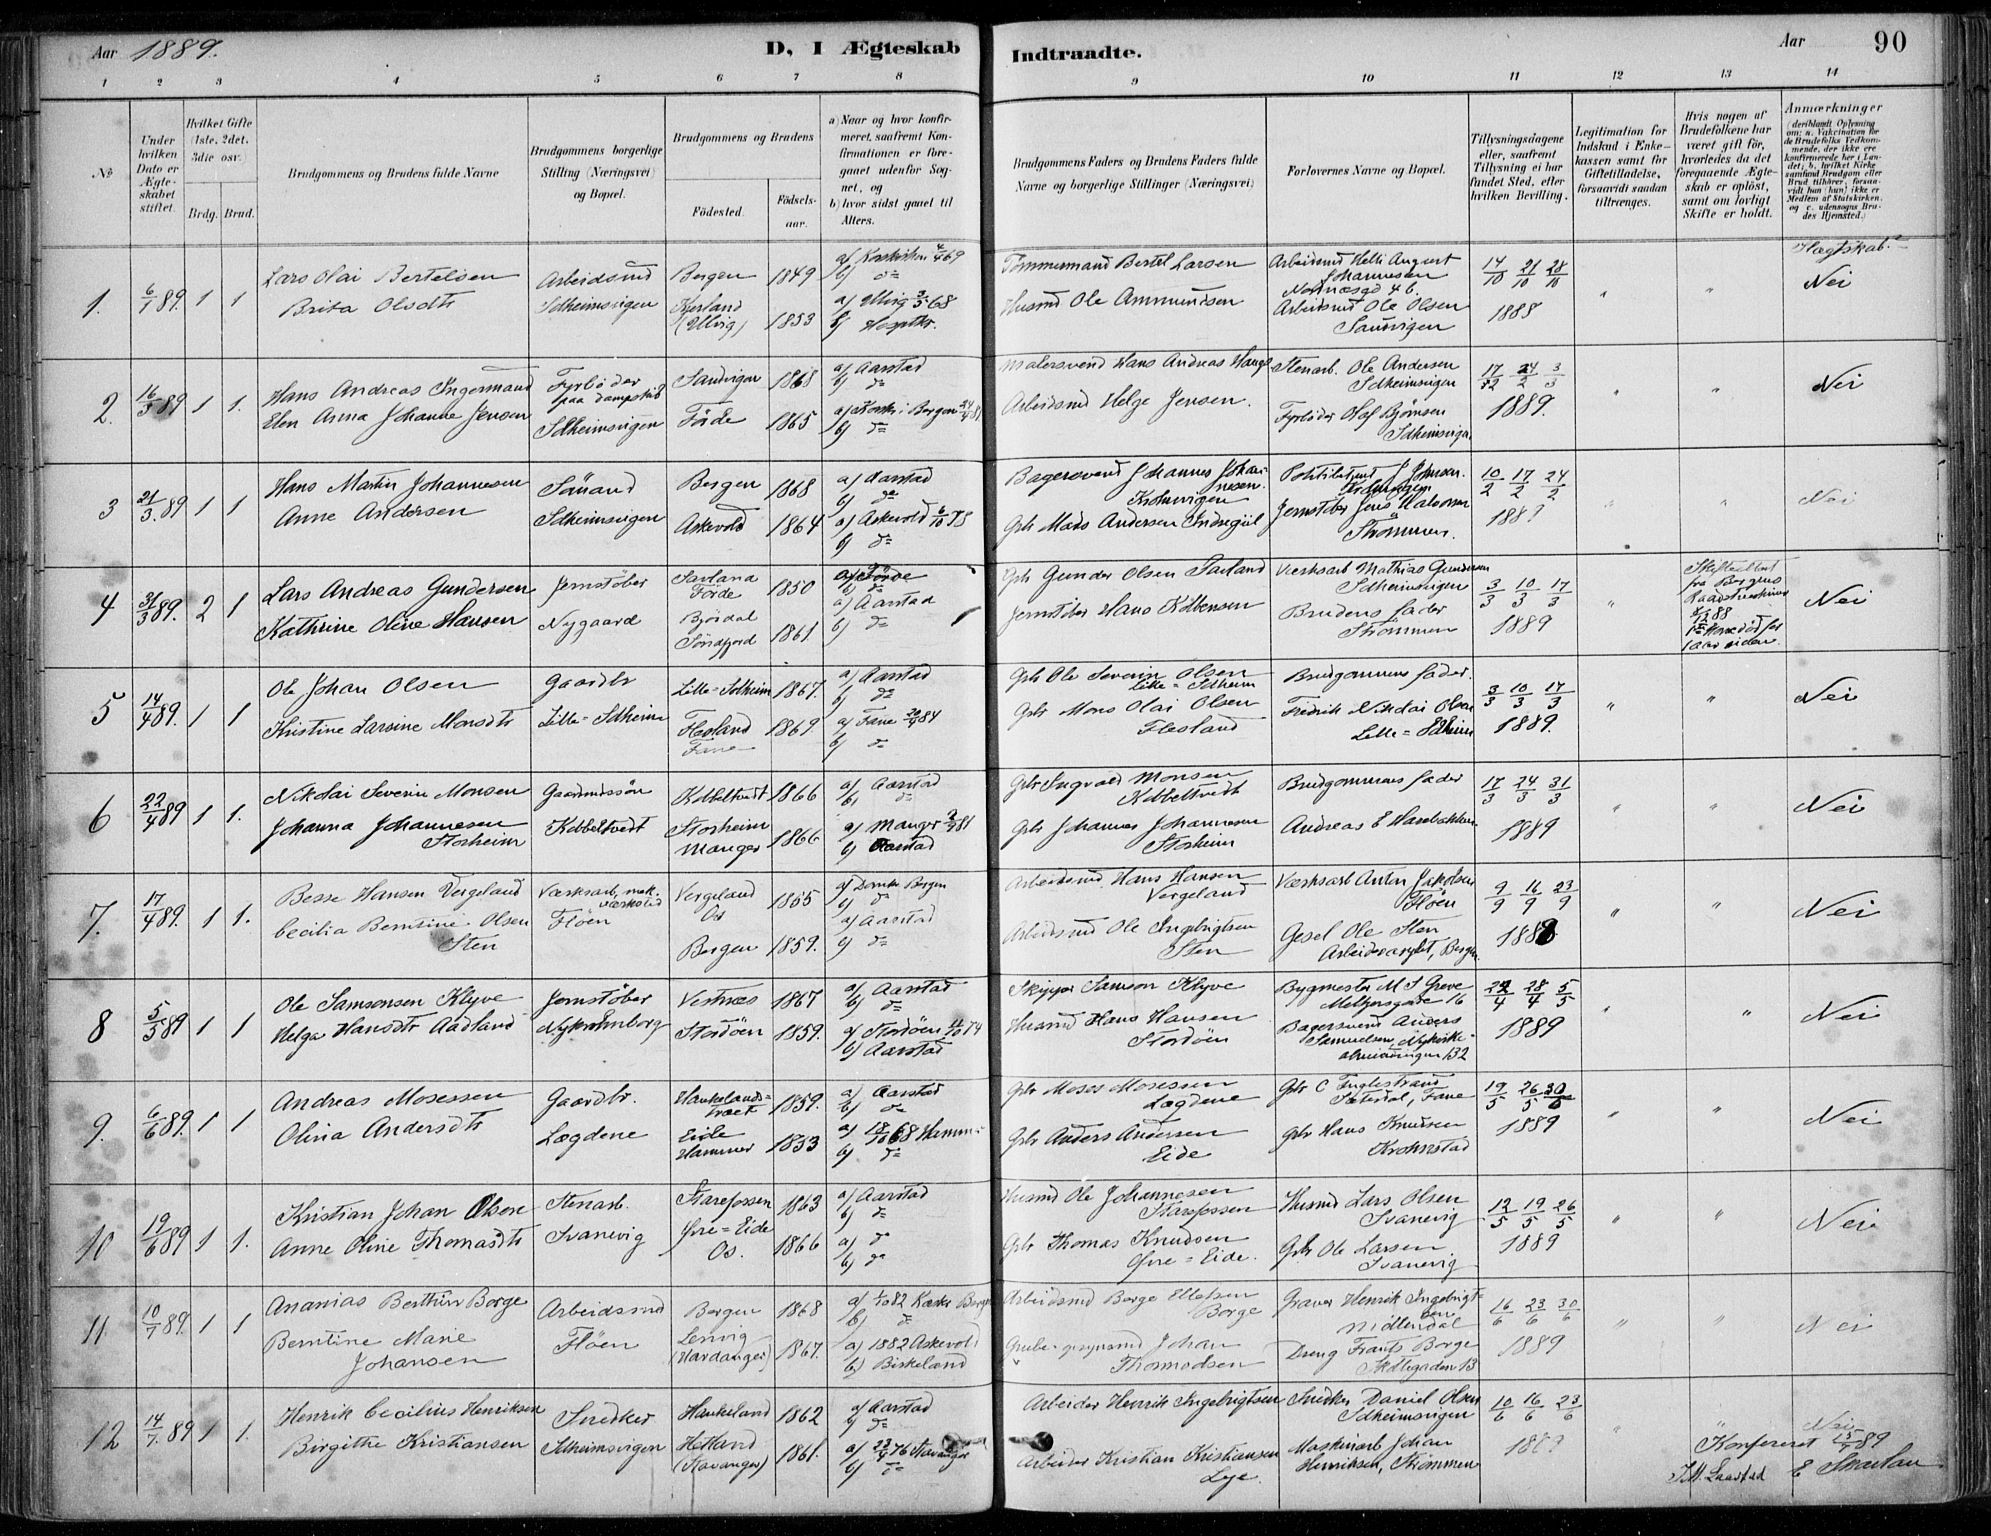 Aar 1889.
D, I Ægteskab Indtraadte.
Aar 90
1 2 3 4 5 6 7 8 9 10 11 12 13 14
No
Under hvilken Dato er Ægteskabet stiftet.
Hvilket Gifte (1ste, 2det, 3die osv.)
Brdg. Brud.
Brudgommens og Brudens fulde Navne
Brudgommens borgerlige Stilling (Næringsvei) og Bopæl.
Brudgommens og Brudens
Fødested.
Fødselsaar.
a) Naar og hvor konfirmeret, saafremt Konfirmationen er foregaaet udenfor Sognet, og
b) hvor sidst gaaet til Alters.
Brudgommens Faders og Brudens Faders fulde Navne og borgerlige Stillinger (Næringsvei)
Forlovernes Navne og Bopæl.
Tillysningsdagene eller, saafremt Tillysning ei har fundet Sted, efter hvilken Bevilling.
Legitimation for Indskud i Enkekassen samt for Giftetilladelse, forsaavidt saadan tiltrænges.
Hvis nogen af Brudefolkene har været gift før, hvorledes da det foregaaende Ægteskab er opløst, samt om lovligt Skifte er holdt.
Anmærkninger
(deriblandt Oplysning om: a. Vakcination for de Brudefolks Vedkommende, der ikke ere konfirmerede her i Landet; b. hvilket Kirkesamfund Brudgom eller Brud tilhører, forsaavidt han (hun) ikke er Medlem af Statskirken, og c. udensogns Brudes Hjemsted.)
Slægtskab.
1. 6/1 89 1 1
Lars Olai Bertelsen Arbeidsmd Bergen 1849 a) Korskirken 4/4 69 b) do
Brita Olsdtr Solheimsvigen Kjerland (Ulvig) 1853 a) Ulvig 3/5 68 b) Hospkr.
Tømmermand Bertel Larsen Arbeidsmd Helli August Johannesen
Husmd Ole Ammundsen Arbeidsmd Ole Olsen Sandvigen
14/10 21/10 28/10 1888 " " Nei
2. 16/3 89 1 1.
Hans Andreas Ingermand Fyrbøder paa Dampskib Sandvigen 1868 a) Aarstad b) do
Elen Anna Johanne Jensen Solheimsvigen Førde 1865 a) Korsk i Bergen 24/4 81 b) do
Malersvend Hans Andreas Stenarb. Ole Andersen Solheimsvigen
Arbeidsmd Helge Jensen. Fyrbøder Olaf Bjørnsen Solheimsvigen
17/2 24/2 3/3 1889. " " Nei
3 21/3 89 1 1
Hans Martin Johannesen Sømand Bergen 1868 a) Aarstad b) do
Anne Andersen Solheimsvigen Askevold 1864 a) Askevold 6/10 78 b) do
Bagersvend Johannes Johannesen Kronvigen
Gbr Mads Andersen Indregjil Jernstøber Jens Strømmen.
10/2 17/2 24/2 1889 " " Nei
4 31/3 89. 2 1
Lars Andreas Gundersen Jernstøber Savland Førde 1850 a) Førde b) do
Kathrine Oline Hansen Nygaard Bjordal Søndfjord 1861. a) Aarstad b) do
Gbr Gunder Olsen Savland Værksarb Mathias Gundersen Solheimsvigen
Jernstøber Hans Kolbensen Brudens fader Strømmen
3/3 10/3 17/3 1889 "
Skifteattest fra Bergens
Nei
5 14/4 89. 1 1
Ole Johan Olsen Gaardbr Lille-Solheim 1867. a) Aarstad b) do
Kristine Larsine Monsdtr Lille-Solheim Flesland Fane 1869 a) Fane 20/4 84 b) do
Gbr Ole Severin Olsen Lille-Solheim Brudgommens fader.
Gbr Mons Olai Olsen Flesland Fredrik Nikolai Olsen Lille-Solheim
3/3 10/3 17/3 1889. " " Nei
6 22/4 89 1 1.
Nikolai Severin Monsen Gaardmdssøn Kobbeltvedt 1866 a) Aarstad b) do
Johanna Johannesen Storheim Kobbeltvedt Storheim Manger 1866 a) Manger 2/4 81 b) Aarstad
Gbr Ingvald Monsen Kobbeltvedt Brudgommens fader
Gbr Johannes Johannesen Storheim Andreas E Harebakken
17/3 24/3 31/3 1889 " " Nei
7. 17/4 89. 1 1.
Besse Hansen Vergeland Værksarb. mek. værksted Vergeland Os 1855 a) Domk Bergen b) do
Cecilia Berntine Olsen Sten Fløen Bergen 1859. a) Aarstad b) do
Arbeidsmd. Hans Hansen Vergeland Værksarb Anton Jakobsen Fløen
Arbeidsmd Ole Ingebrigtsen Sten Gesel Ole Sten Bergen
9/9 16/9 23/9 1888 " " Nei
8 5/5 89 1 1
Ole Samsonsen Klyve Jernstøber Vestnæs 1867 a) Aarstad b) do
Helga Hansdtr Aadland Nykronborg Stordøen 1859. a) Stordøen 11/10 74 b) Aarstad
Skipper Samson Klyve Bygmester M S Greve Meltzersgade 16
Husmd Hans Hansen Stordøen Bagersvend Anders Samuelsen, Nykirkealmindingen 132
22/4 28/4 5/5 1889 " " Nei
9. 6/6 89. 1 1
Andreas Mosessen Gaardbr. Haukelandstræet 1859. a) Aarstad b) do
Olina Andersdtr Lægdene Eide Hammer 1853 a) 18/10 68 Hammer b) do
Gbr Moses Mosessen Lægdene Gbr C Teglestrand Sætersdal, Fane
Gbr Anders Andersen Eide Gbr Hans Knudsen Krohnstad
19/5 26/5 30/5 1889 " " Nei
10 19/6 89 1 1.
Kristian Johan Olsen Stenarb. Starefossen 1863 a) Aarstad b) do
Anne Oline Thomasdtr Svanevig Øvre-Eide Os. 1866 a) do b) do
Husmd Ole Johannesen Starefossen Husmd Lars Olsen Svanevig
Gbr Thomas Knudsen Øvre-Eide. Gbr Ole Larsen Svanevig
12/5 19/5 26/5 1889 " " Nei
11 10/7 89. 1 1
Ananias Berthin Borge Arbeidsmd Bergen 1868 a) 1/10 82 Korsk Bergen b) do
Berntine Marie Johansen Fløen Lenvig (Hardanger) 1867. a) 1882 Askevold b) Birkeland
Arbeidsmd Borge Ellefsen Borge Graver Henrik Ingebrigtsen Midlendal
Johan Thomasdsen Dreng Frants Borge Skoltegaden 13
16/6 23/6 30/6 1889 " " Nei
12 14/7. 89 1 1.
Henrik Cecilius Henriksen Snedker Haukeland 1862 a) Aarstad b) do
Birgithe Kristiansen Solheimsvigen Hetland (Stavanger) 1861. a) 23/4 76 Stavanger b) do
Arbeider Henrik Ingebrigtsen Snedker Daniel Olsen Solheimsvigen
Arbeider Kristian Kristiansen Lye. Maskinarb Johan Henriksen, Strømmen
10/6 16/6 23/6 1889 " " Nei
Konfereret 15/7 89
J.M. Laastad E